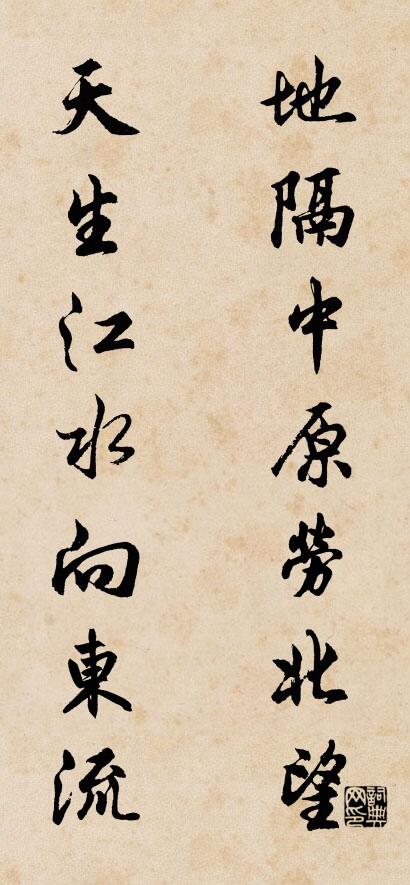 地隔中原勞北望
天生江水向東流
詞典网印